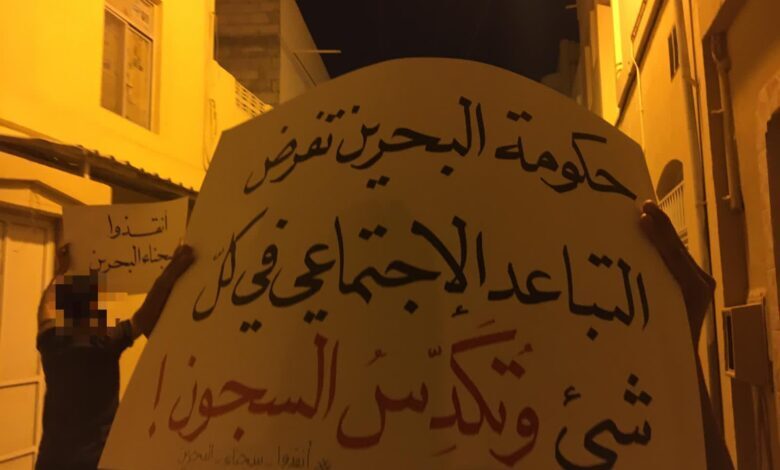 حكومة البحرين تفرض
التباعد الإجتماعي في كلّ
شئ وتُكَدِّسُ السجون !
أنقذوا_سجناء_البحرين
انقذوا
سجناء البحرين